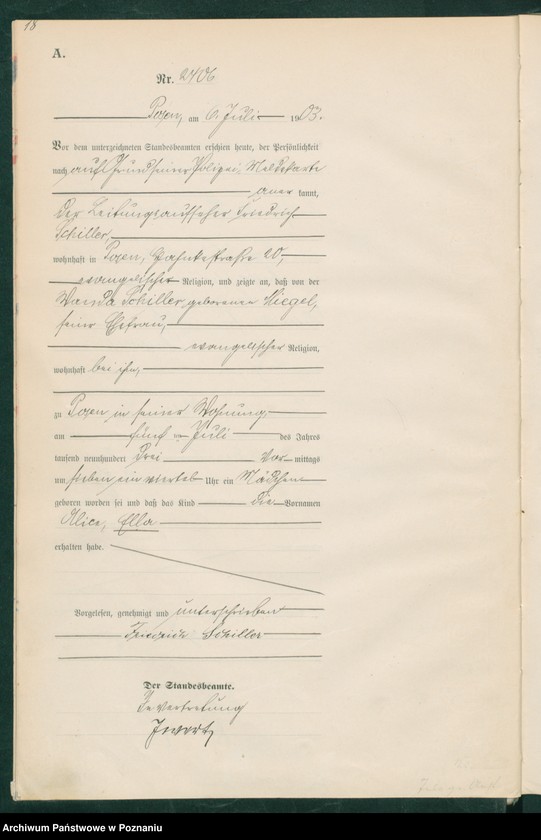 18
A.
Nr. 2406
Posen, am 6. Juli 1903.
Vor dem unterzeichneten Standesbeamten erschien heute, der Persönlichkeit
nach auf Grund seiner Polizei Meldekarte
aner kannt,
der Leitungsaufseher Friedrich
Schiller,
wohnhaft in Posen, 20,
evangelischer Religion, und zeigte an, daß von der
Wanda Schiller, geborenen Kiegel,
seiner Ehefrau,
evangelischer Religion,
wohnhaft bei ihm,
zu Posen in seiner Wohnung
am fünften Juli des Jahres
tausend neunhundert drei Vor mittags
um sieben ein viertel Uhr ein Mädchen
geboren worden sei und daß das Kind die Vornamen
Alice, Ella
erhalten habe.
Vorgelesen, genehmigt und unterschrieben
Friedrich Schiller
Der Standesbeamte.
In Vertretung
Archiwum Państwowe w Poznaniu